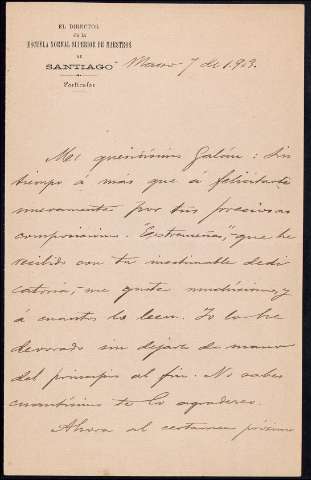 EL DIRECTOR
DE LA
ESCUELA NORMAL SUPERIOR DE MAESTROS
DE
SANTIAGO
Particular
Marzo 7 de 1903.
Mi queridísimo Galán: Sin
tiempo á más que á felicitarte
nuevamente por tus preciosas
composiciones "Extremeñas", que he
recibido con tu inestimable dedi
catoria, me gusta muchísimo, y
á cuantos la leen. Yo la he
devorado sin dejarle de mano
del principio al fin. No sabes
cuantísimo te lo agradezco.
Ahora al certamen próximo